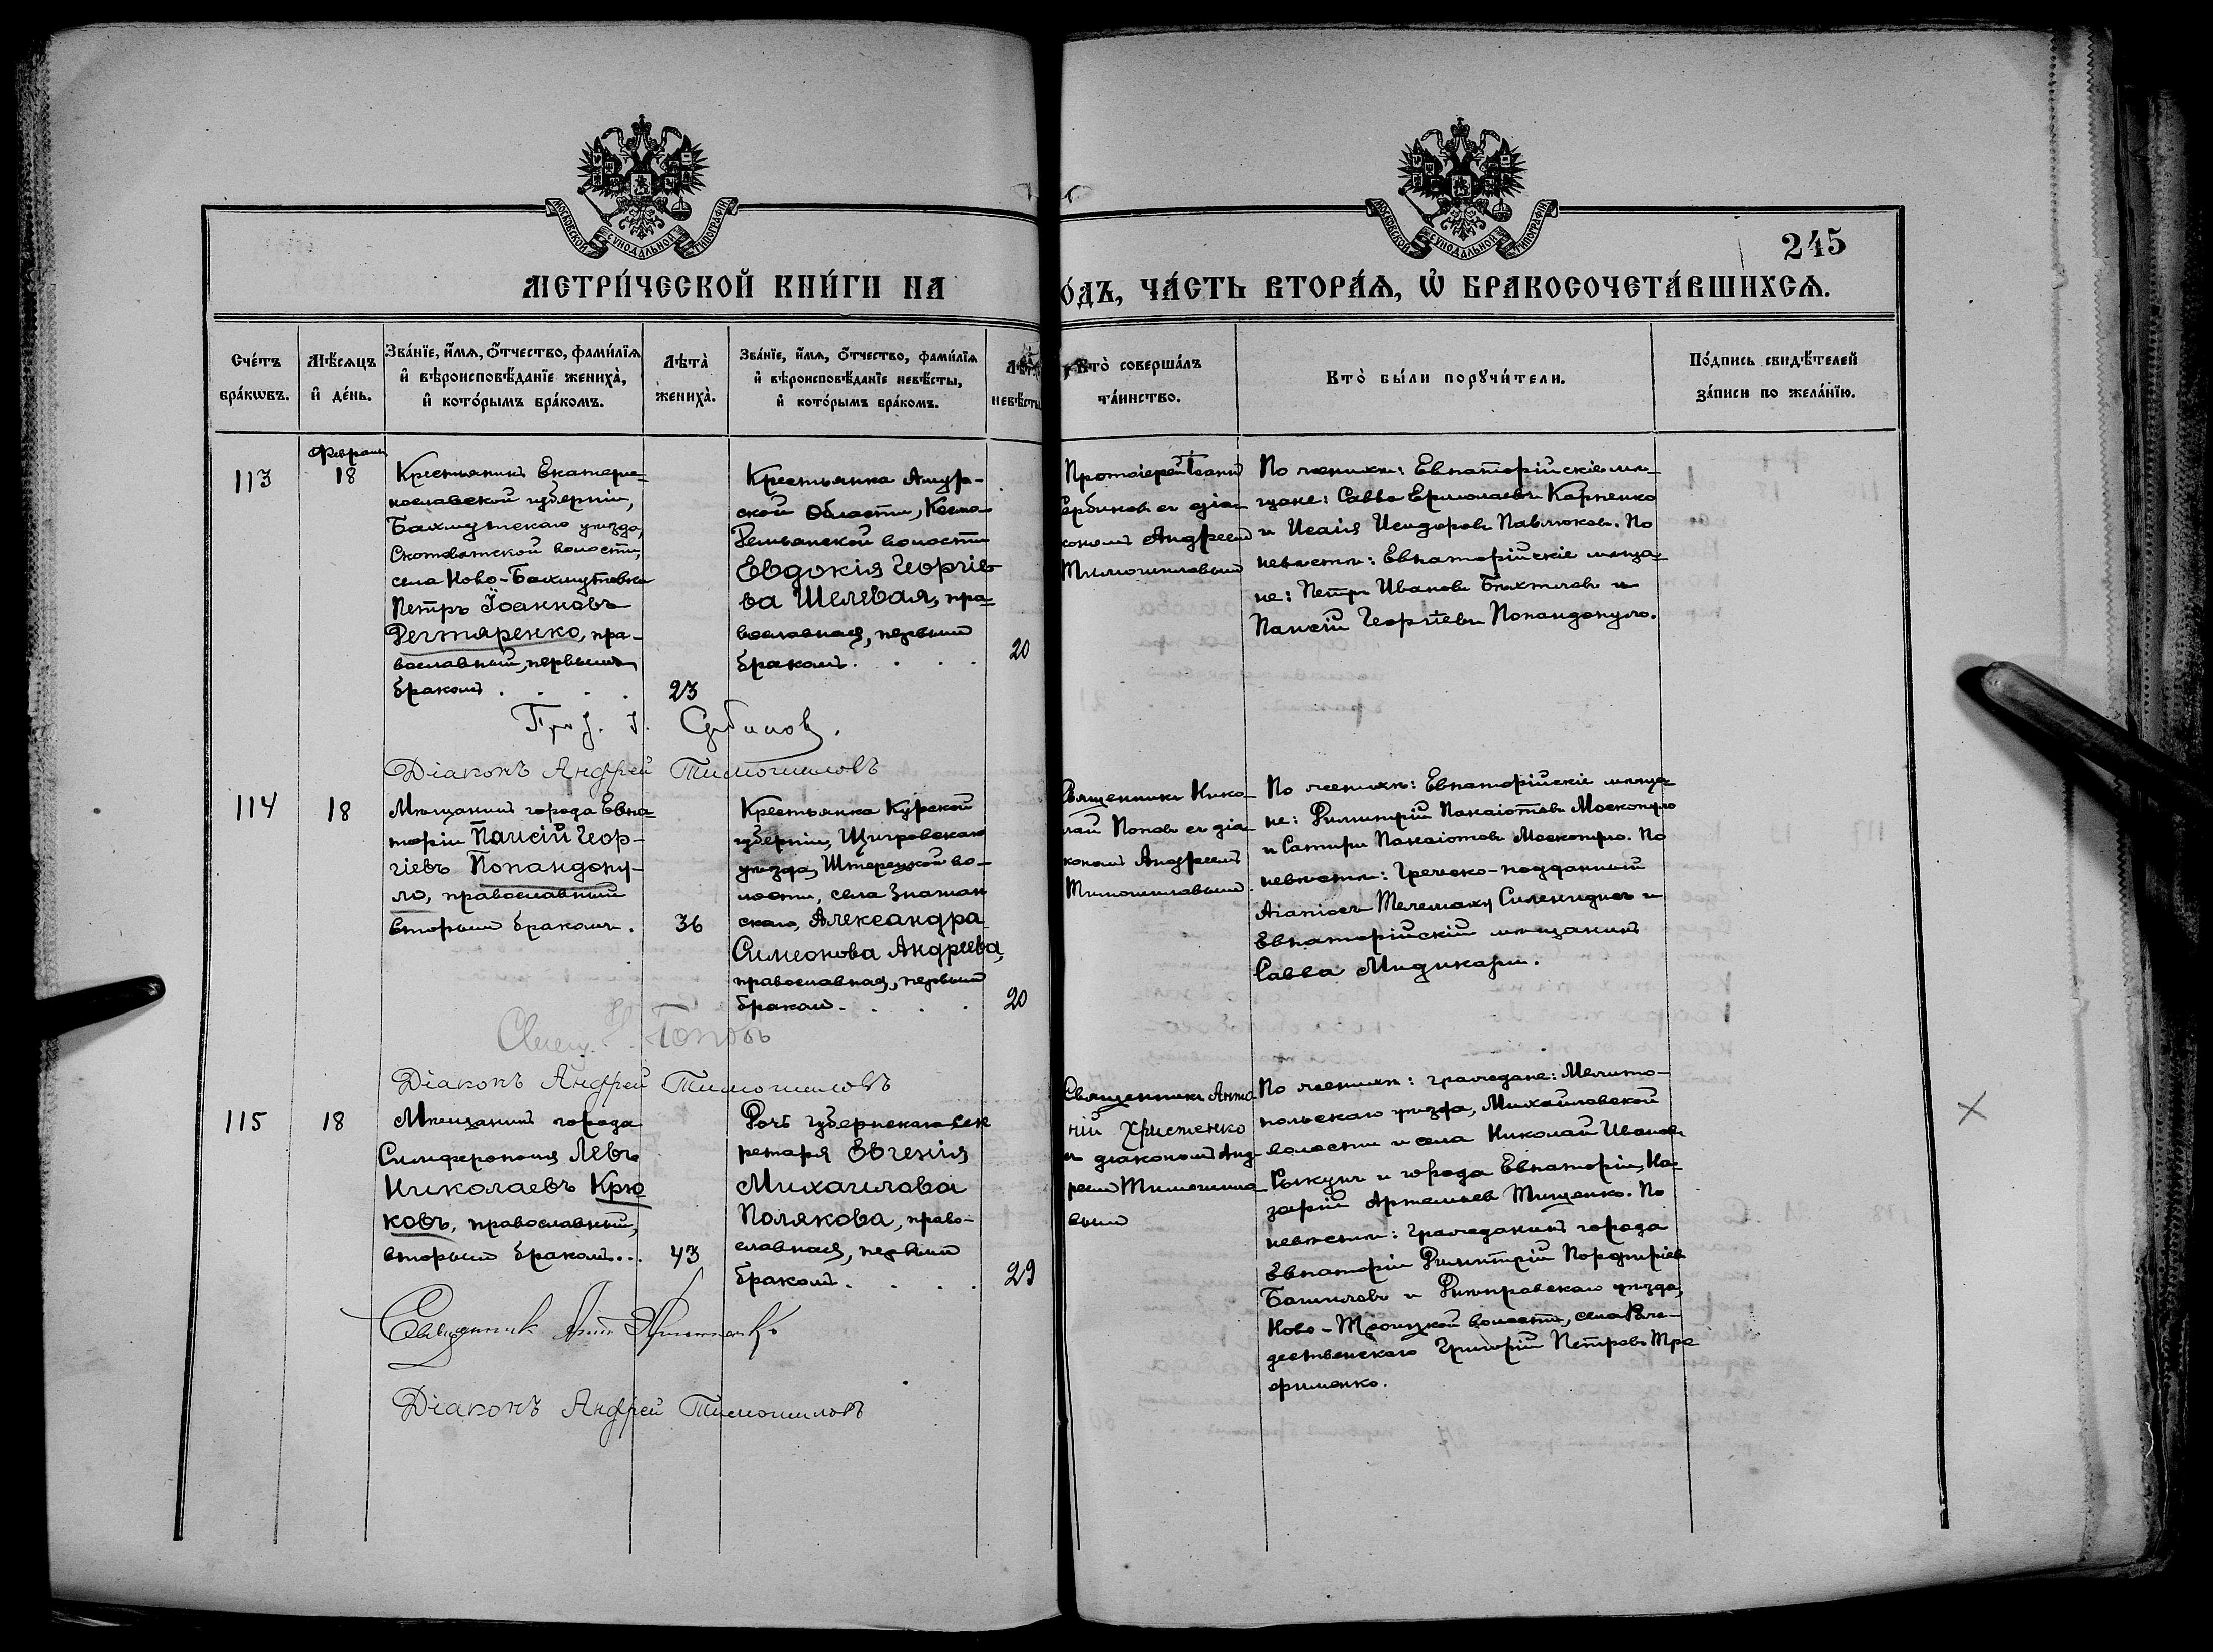 МОСКОВСКОЙ СѴНОДАЛЬНОЙ ТИПОГРАФІИ
МОСКОВСКОЙ СѴНОДАЛЬНОЙ ТИПОГРАФІИ
245
МЕТРИ́ЧЕСКОЙ КНИ́ГИ НА
О́ДЪ, ЧА́СТЬ ВТОРА́Ѧ, Ѡ҆ БРАКОСОЧЕТА́ВШИХСѦ.
Сче́тъ
бра́кѡвъ.
Мѣ́сѧцъ
и҆ де́нь.
Зва́нїе, и҆́мѧ, ѻ҆́тчество, фами́лїѧ
и҆ вѣроисповѣ́данїе жениха̀,
и҆ кото́рымъ бра́комъ.
Лѣта̀
жениха̀.
Зва́нїе, и҆́мѧ, ѻ҆́тчество, фами́лїѧ
и҆ вѣроисповѣ́данїе невѣ́сты,
и҆ кото́рымъ бра́комъ.
невѣ́сты
Кто̀ соверша́лъ
та́инство.
Кто̀ бы́ли порꙋчи́тели.
По́дпись свидѣ́телей
за́писи по жела́нїю.
113
Февраль
18
Крестьянинъ Екатери-
нославской губерніи,
Бахмутскаго уѣзда,
Скотоватской волости,
села Ново-Бахмутовка
Петръ Іоанновъ
Дегтяренко, пра-
вославный, первымъ
бракомъ . . . .
23
Крестьянка Амур-
ской Области, Козьмо-
Демьянской волости
Евдокія Георгіе-
ва Шелевая, пра-
вославная, первымъ
бракомъ. . . .
20
Протоіерей Іоаннъ
Сербиновъ съ діа-
кономъ Андреемъ
Тимошиловымъ
По женихѣ: Евпаторійскіе мѣ-
щане: Савва Ермолаевъ Карпенко
и Исаія Исидоровъ Павлюковъ. По
невѣстѣ: Евпаторійскіе мѣща-
не: Петръ Ивановъ и
Паисій Георгіевъ Попандопуло.
Прот. І. Сербиновъ.
Діаконъ Андрей Тимошиловъ
114
18
Мѣщанинъ города Евпа-
торіи Паисій Геор-
гіевъ Попандопу-
ло, православный
вторымъ бракомъ.
36
Крестьянка Курской
губерніи, Щигровскаго
уѣзда, во-
лости, села Знамен
скаго, Александра
Симеонова Андреева,
православная, первымъ
бракомъ. . . .
20
Священникъ Нико-
лай Поповъ съ діа-
кономъ Андреемъ
Тимошиловымъ.
По женихѣ: Евпаторійскіе мѣща-
не: Димитрій Панаіотовъ Москопуло
и Сатири Панаіотовъ Москопуло. По
невѣстѣ: Греческо-подданный
Телемахъ и
Евпаторійскій мѣщанинъ
Савва Мидикари.
Свящ. Н. Поповъ
Діаконъ Андрей Тимошиловъ
115
18
Мѣщанинъ города
Симферополя Левъ
Николаевъ Крю
ковъ, православный,
вторымъ бракомъ...
43
Дочь губернскаго сек
ретаря Евгенія
Михаилова
Полякова, право-
славная, первымъ
бракомъ. . . .
29
Священникъ Анто
ній Христенко
съ діакономъ Анд-
реемъ Тимошило-
вымъ
По женихѣ: граждане: Мелито-
польскаго уѣзда, Михайловской
волости и села Николай Ивановъ
и города Евпаторіи, На-
зарій Артемьевъ Тищенко. По
невѣстѣ: гражданинъ города
Евпаторіи Димитрій Порфиріевъ
Башиловъ и Днѣпровскаго уѣзда,
Ново-Троицкой волости, села Рож-
дественскаго Григорій Петровъ Тро
фименко.
Священникъ Антоній Христенко
Діаконъ Андрей Тимошиловъ